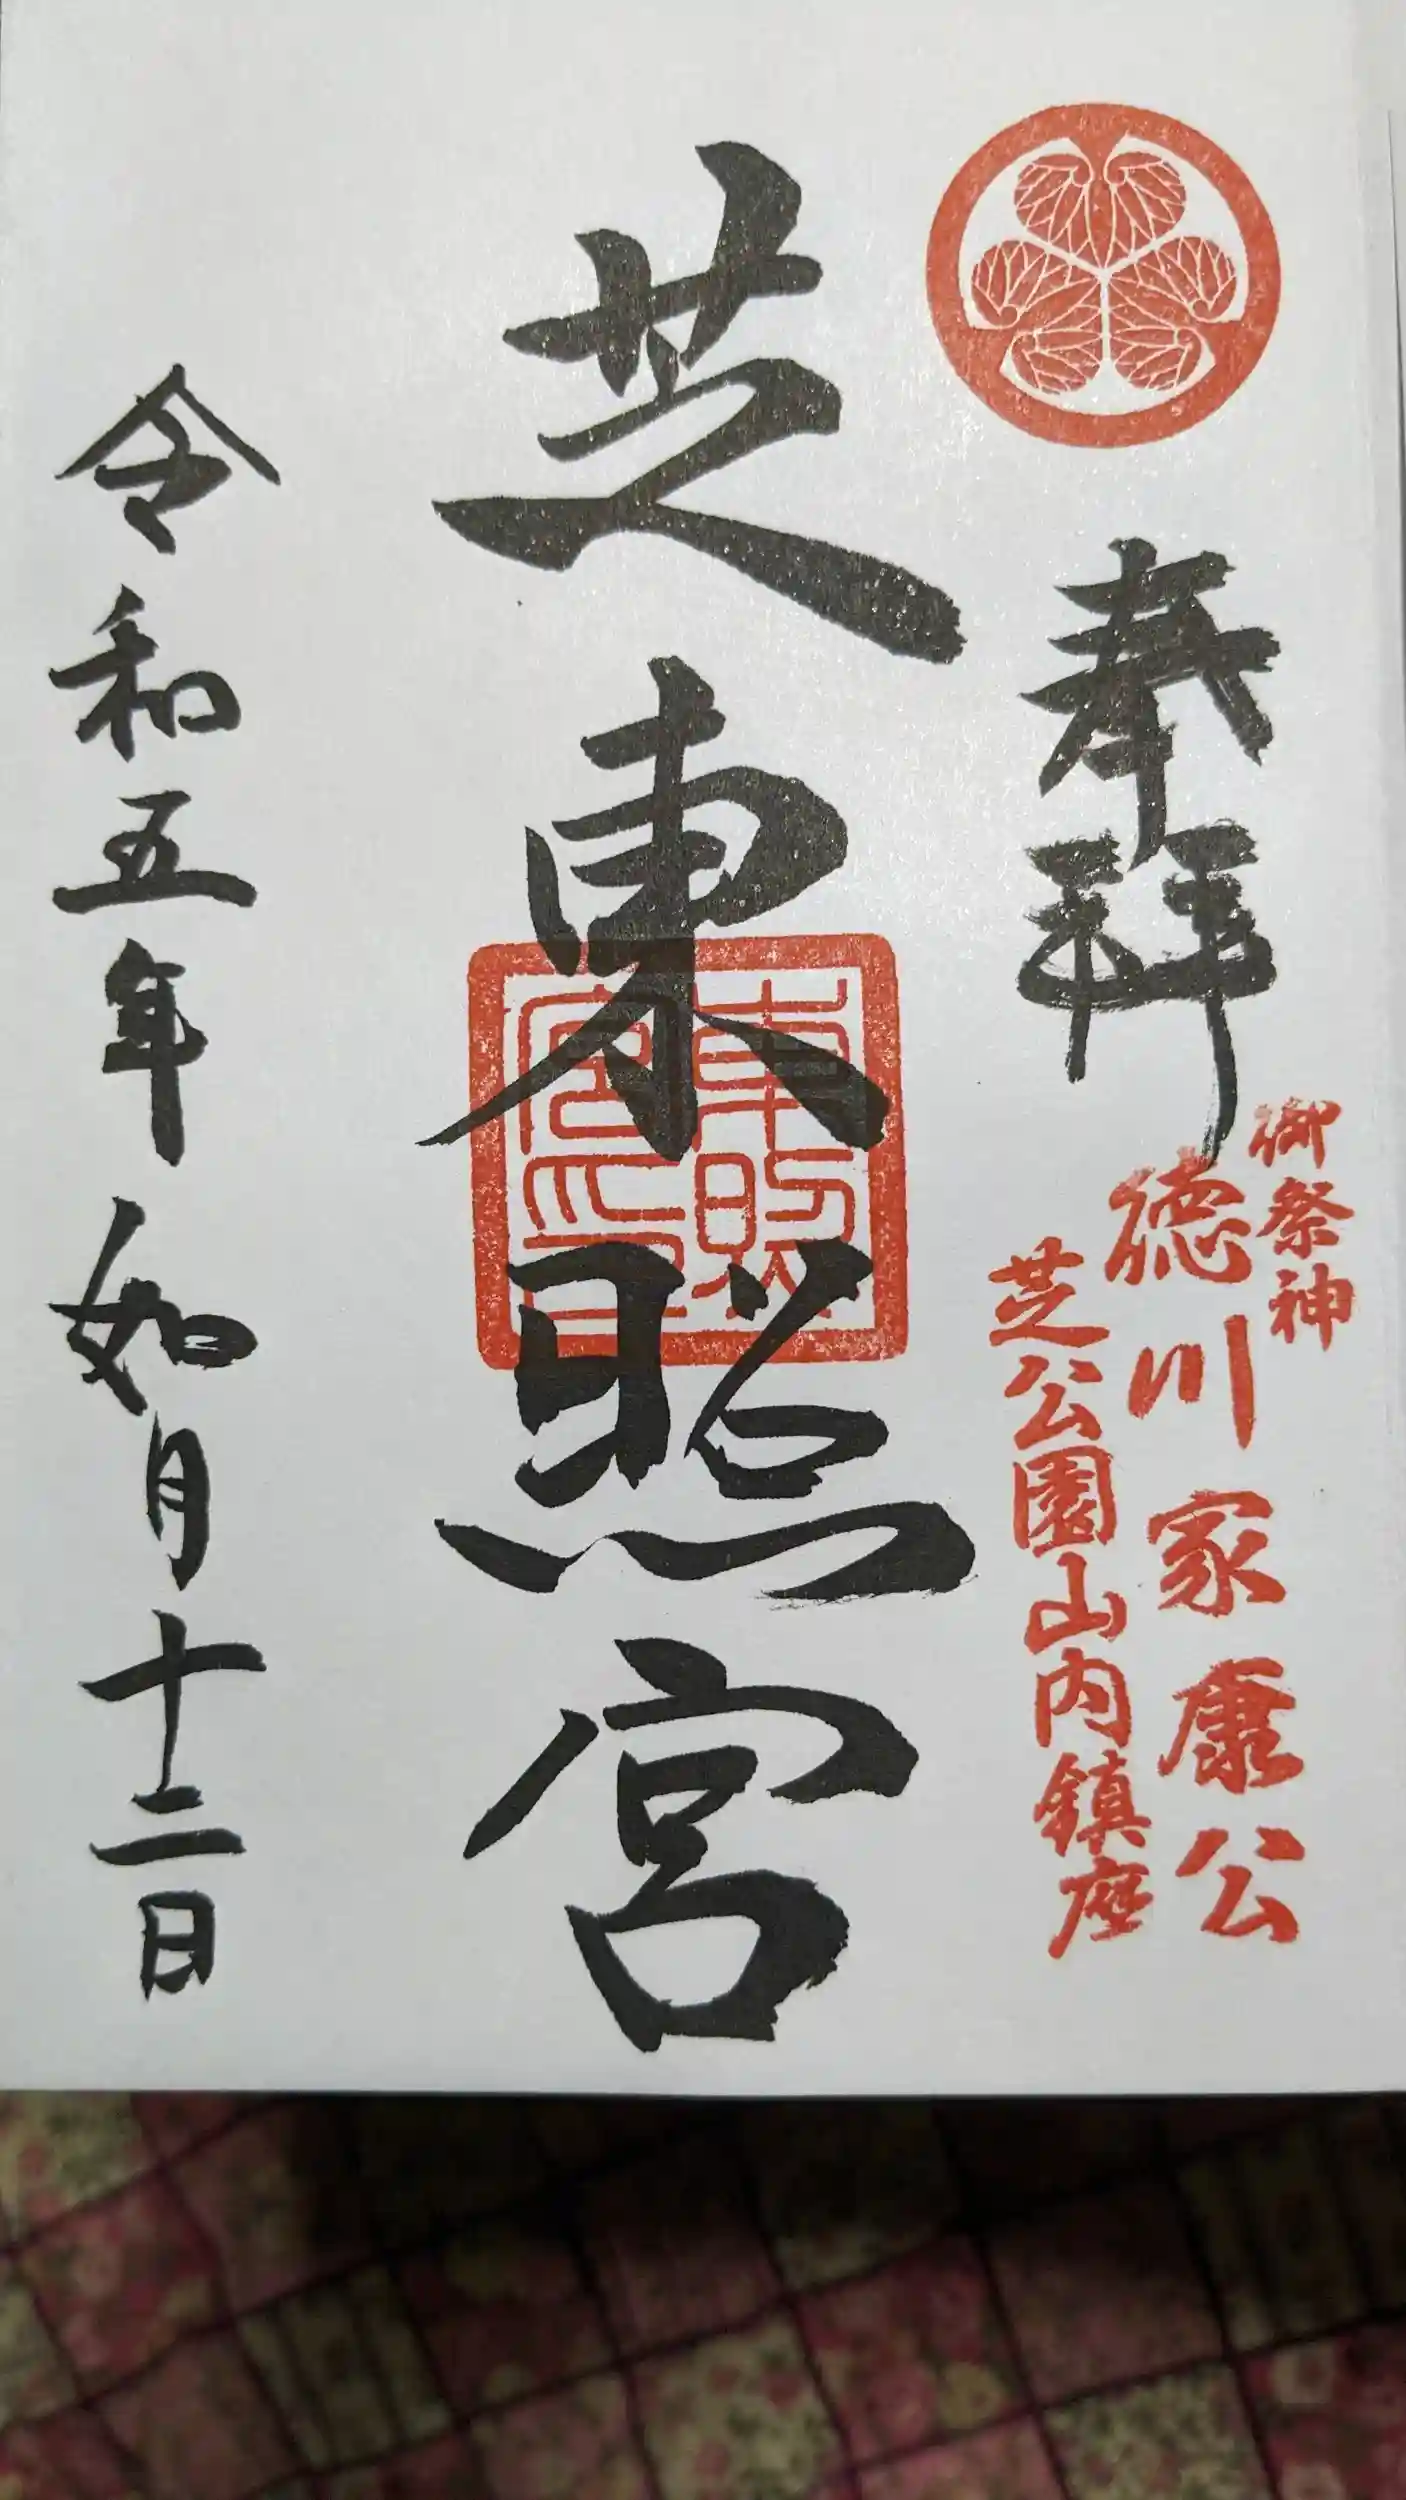 奉拝
御祭神
徳川家康公
芝公園山内鎮座
芝東照宮
東照
宮印
令和五年如月十二日